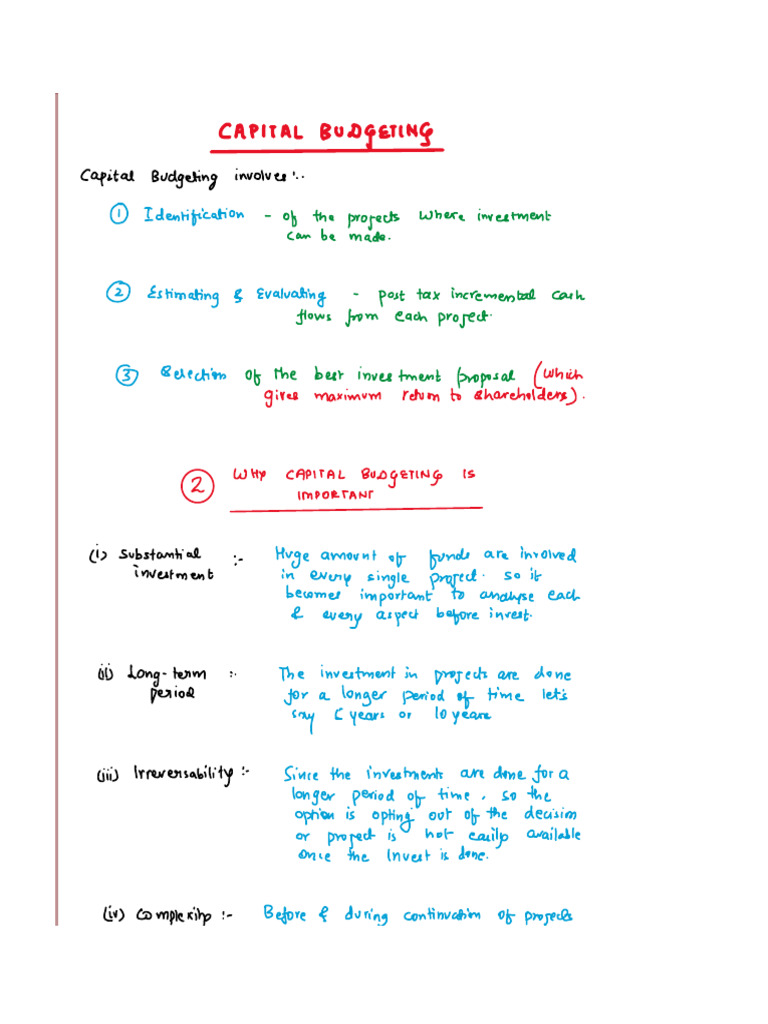 CAPITAL BUDGETING
Capital Budgeting involves:-
① Identification - of the projects where investment
can be made.
② Estimating & Evaluating - post tax incremental cash
flows from each project.
③ Selection of the best investment proposal (which
gives maximum return to shareholders).
② WHY CAPITAL BUDGETING IS
IMPORTANT
(i) Substantial :- Huge amount of funds are involved
investment in every single project. so it
becomes important to analyse each
& every aspect before invest.
(ii) Long-term :- The investment in projects are done
period for a longer period of time let's
say 5 years or 10 years
(iii) Irreversability :- Since the investments are done for a
longer period of time, so the
option is opting out of the decision
or project is not easily available
once the invest is done.
(iv) Complexity :- Before & during continuation of projects